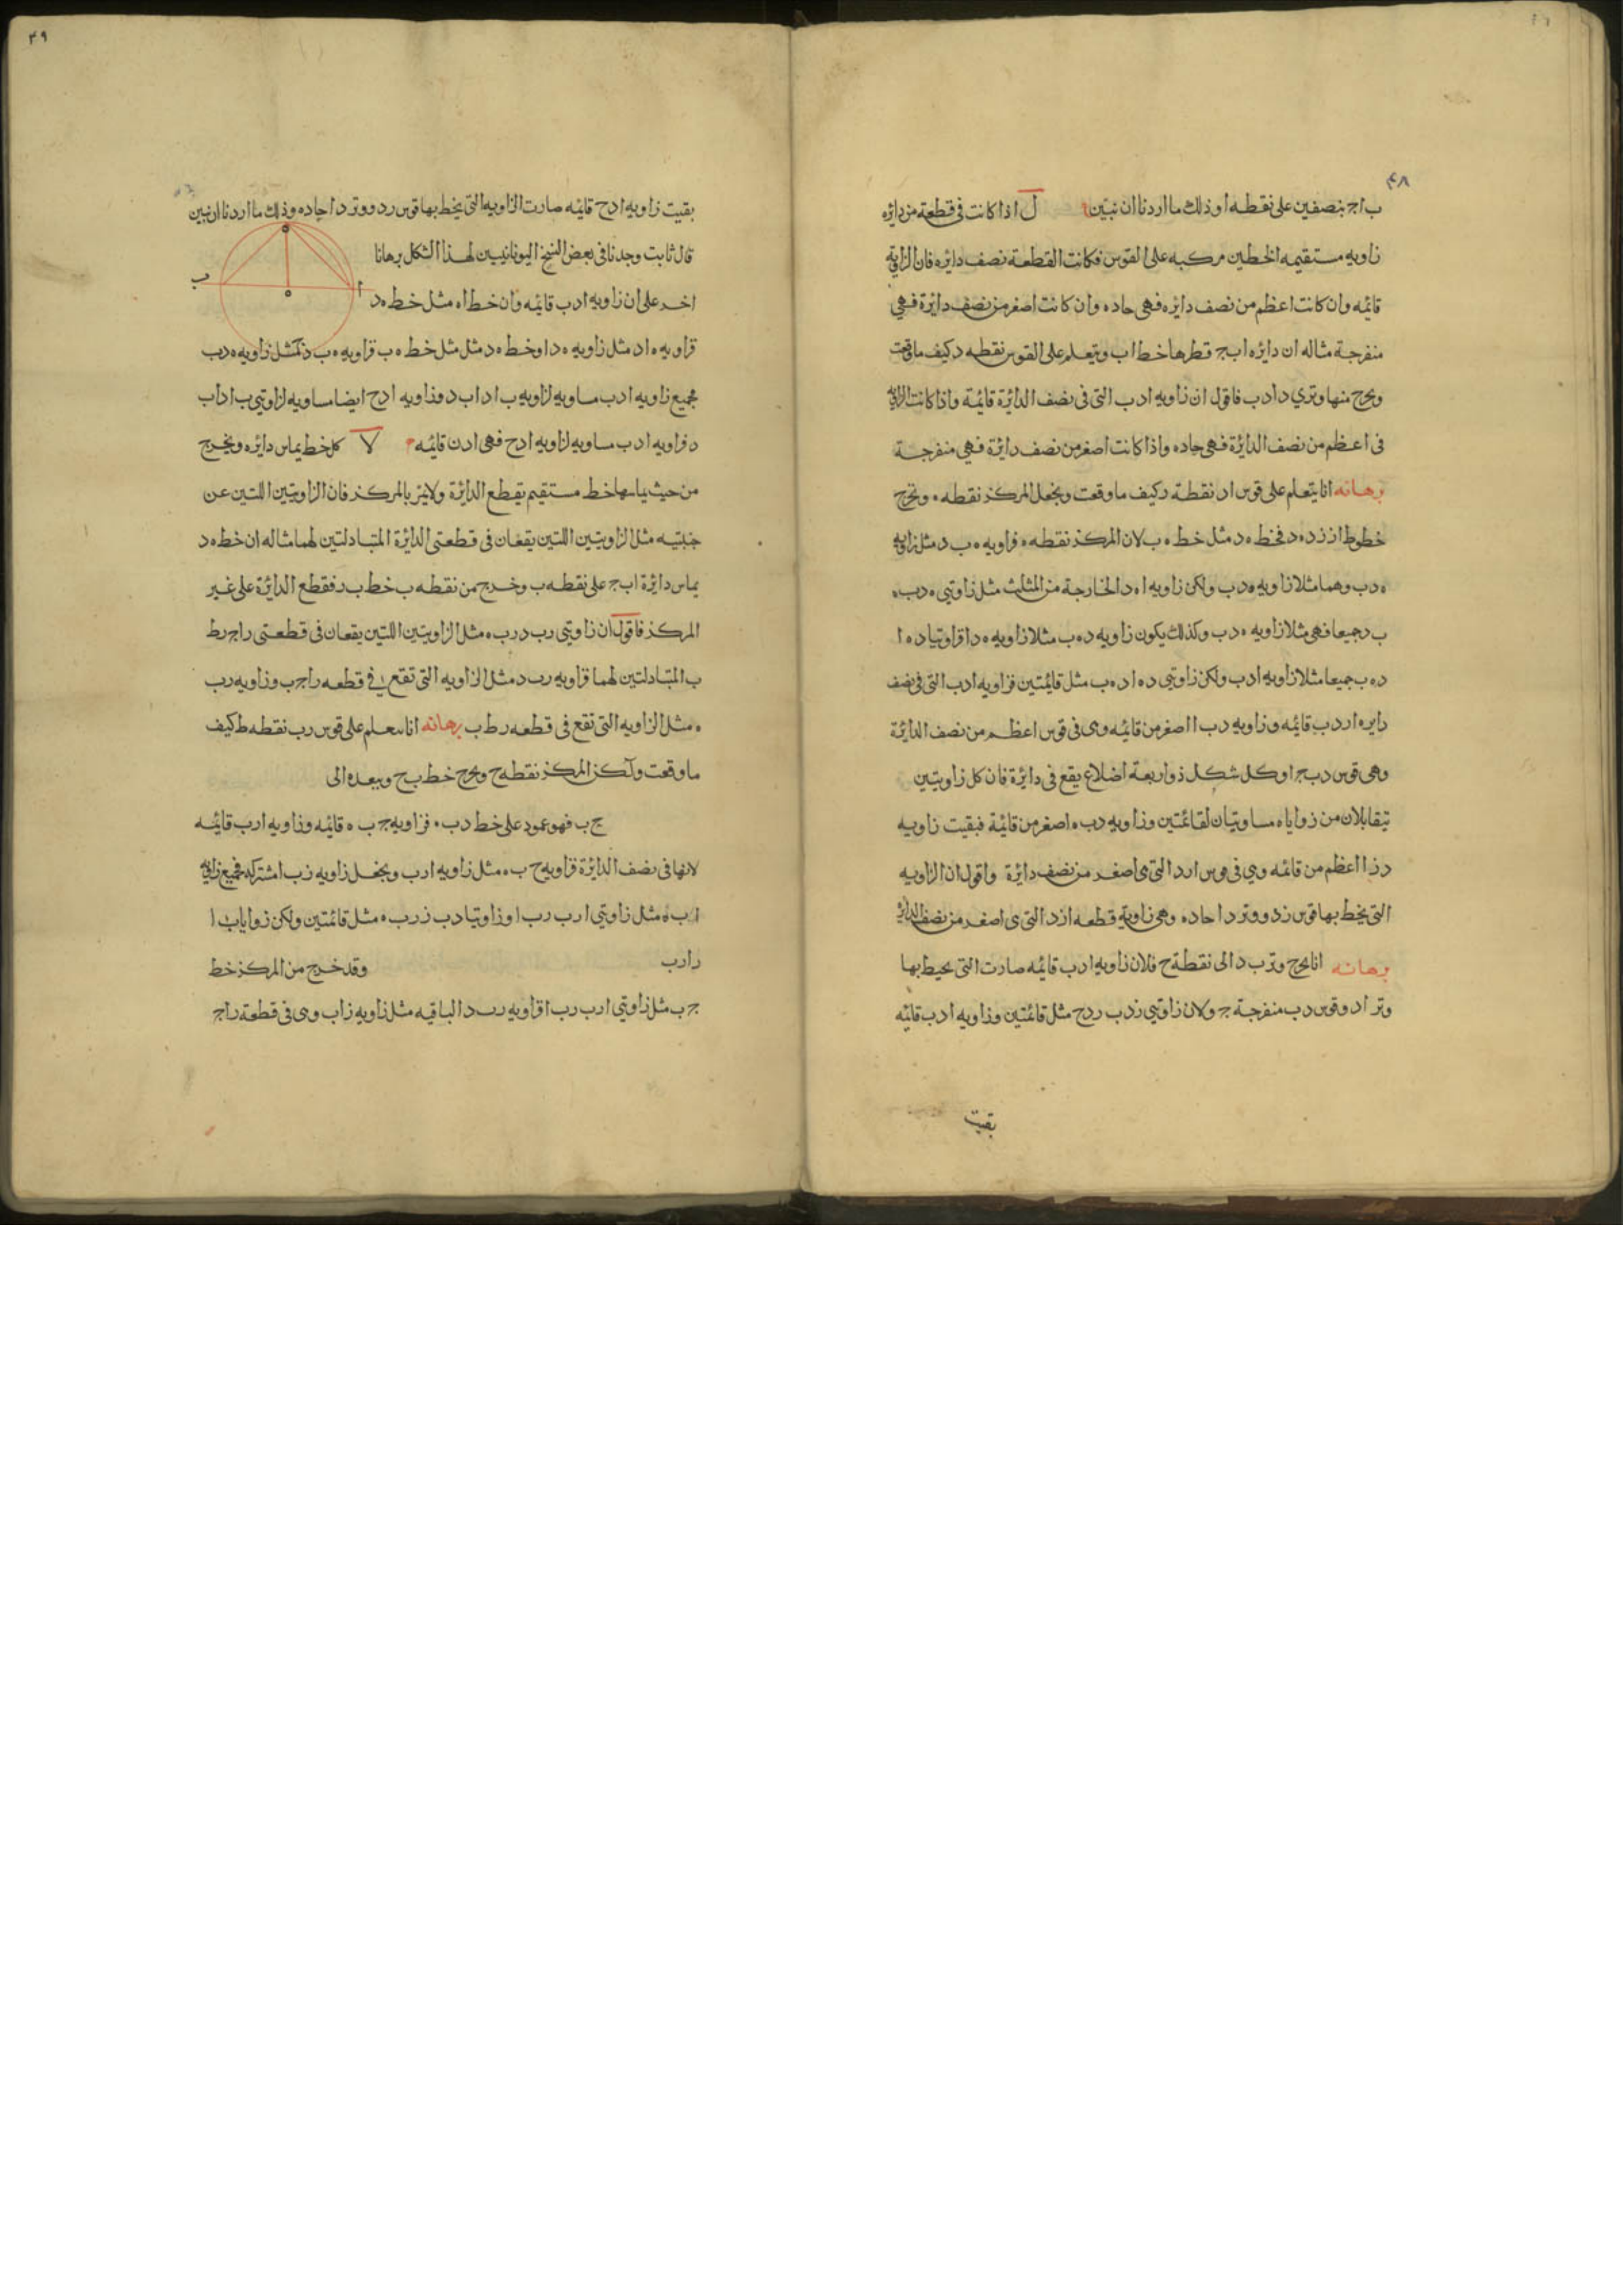 ۴۸
ب اج بنصفين على نقطه ا وذلك ما اردنا ان نبين ل اذا كانت فى قطعة من دائره
زاويه مستقيمه الخطين مركبه على القوس فكانت القطعة نصف دائره فان الزاويه
قائمه وان كانت اعظم من نصف دائره فهى حاده وان كانت اصغر من نصف دائرة فهي
منفرجة مثاله ان دائره ابج قطرها خط اب ويتعلم على القوس نقطه د كيف ما وقعت
ويخرج منها وتري دا دب فاقول ان زاويه ادب التى فى نصف الدائرة قائمة واذا كانت الزاويه
فى اعظم من نصف الدائرة فهى حاده واذا كانت اصغر من نصف دائرة فهي منفرجة
برهانه انا يتعلم على قوس اد نقطة ر كيف ما وقعت ويجعل المركز نقطه ه ويخرج
خطوط از زد ه د فخط ه د مثل خط ه ب لان المركز نقطه ه فزاويه ه ب د مثل زاويه
ه دب وهما مثلا زاويه ه دب ولكن زاويه ا ه د الخارجة من المثلث مثل زاويتي ه دب ه
ب د جميعا فهي مثلا زاويه ه دب وكذلك يكون زاويه د ه ب مثلا زاويه ه دا فزاويتا د ه ا
د ه ب جميعا مثلا زاويه ادب ولكن زاويتي د ه ا د ه ب مثل قائمتين فزاويه ادب التى فى نصف
دايره ا ر دب قائمه وزاويه دب ا اصغر من قائمه وى فى قوس اعظم من نصف الدائرة
وهى قوس دب جا وكل شكل ذو اربعة اضلاع يقع فى دائرة فان كل زاويتين
تيقابلان من زواياه مساويتان لقائمتين وزاويه دب ه اصغر من قائمة فبقيت زاويه
د زا اعظم من قائمه وي فى قوس ارد التى ى اصغر من نصف دائرة واقول ان الزاويه
التى يحيط بها قوس زد ووتر دا حاده وهى زاوية قطعه ازد التى ى اصغر من نصف الدائرة
برهانه انا يخرج وتر ب د الى نقطة ح فلان زاويه ادب قائمه صارت التى يحيط بها
وتر اد وقوس دب منفرجة ج ولان زاويتي زدب ردح مثل قائمتين وزاويه ادب قائمه
بقيت
۴۹
بقيت زاويه ادح قائمه صارت الزاويه التى يحيط بها قوس رد ووتر دا حاده وذلك ما اردنا ان نبين
قال ثابت وجدنا فى بعض النسخ اليونانيين لهذا الشكل برهانا
اخر على ان زاويه ادب قائمه وان خط اه مثل خط ه د
فزاويه ه اد مثل زاويه ه دا وخط ه د مثل مثل خط ه ب فزاويه ه ب د كمثل زاويه ه دب
فجميع زاويه ادب مساويه لزاويه ب اد اب د وزاويه ادح ايضا مساويه لزاويتي ب اد اب
د فزاويه ادب مساويه لزاويه ادح فهى اذن قائمه لا كل خط يماس دائره ويخرج
من حيث يماسها خط مستقيم يقطع الدائرة ولا يمر بالمركز فان الزاويتين اللتين عن
جنبتيه مثل الزاويتين اللتين يقعان فى قطعتى الدائرة المتبادلتين لهما مثاله ان خط ه د
يماس دائرة ابج على نقطه ب وخرج من نقطه ب خط ب ر فقطع الدائرة على غير
المركز فاقول ان زاويتي رب د رب ه مثل الزاويتين اللتين يقعان فى قطعتى راج رط
ب المتبادلتين لهما فزاويه رب د مثل الزاويه التى تقع في قطعه راجب وزاويه رب
ه مثل الزاويه التى تقع فى قطعه رط ب برهانه انا سعلم على قوس رب نقطه ط كيف
ما وقعت ولكن المركز نقطه ح ويخرج خط ب ح وبعده الى
ج ب فهو عمود على خط دب ه فزاويه ج ب ه قائمه وزاويه ارب قائمه
لانها فى نصف الدائرة فزاويه ح ب ه مثل زاويه ارب ويجعل زاويه زب ا مشتركه فجميع زاويه
ا ب ه مثل زاويتي ارب رب ا وزاويتا دب ز رب ه مثل قائمتين ولكن زوايا ب ا
رارب وقد خرج من المركز خط
ج ب مثل زاويتي ارب رب ا فزاويه رب د الباقيه مثل زاويه زاب وى فى قطعة راج
ب
ا
د
ه